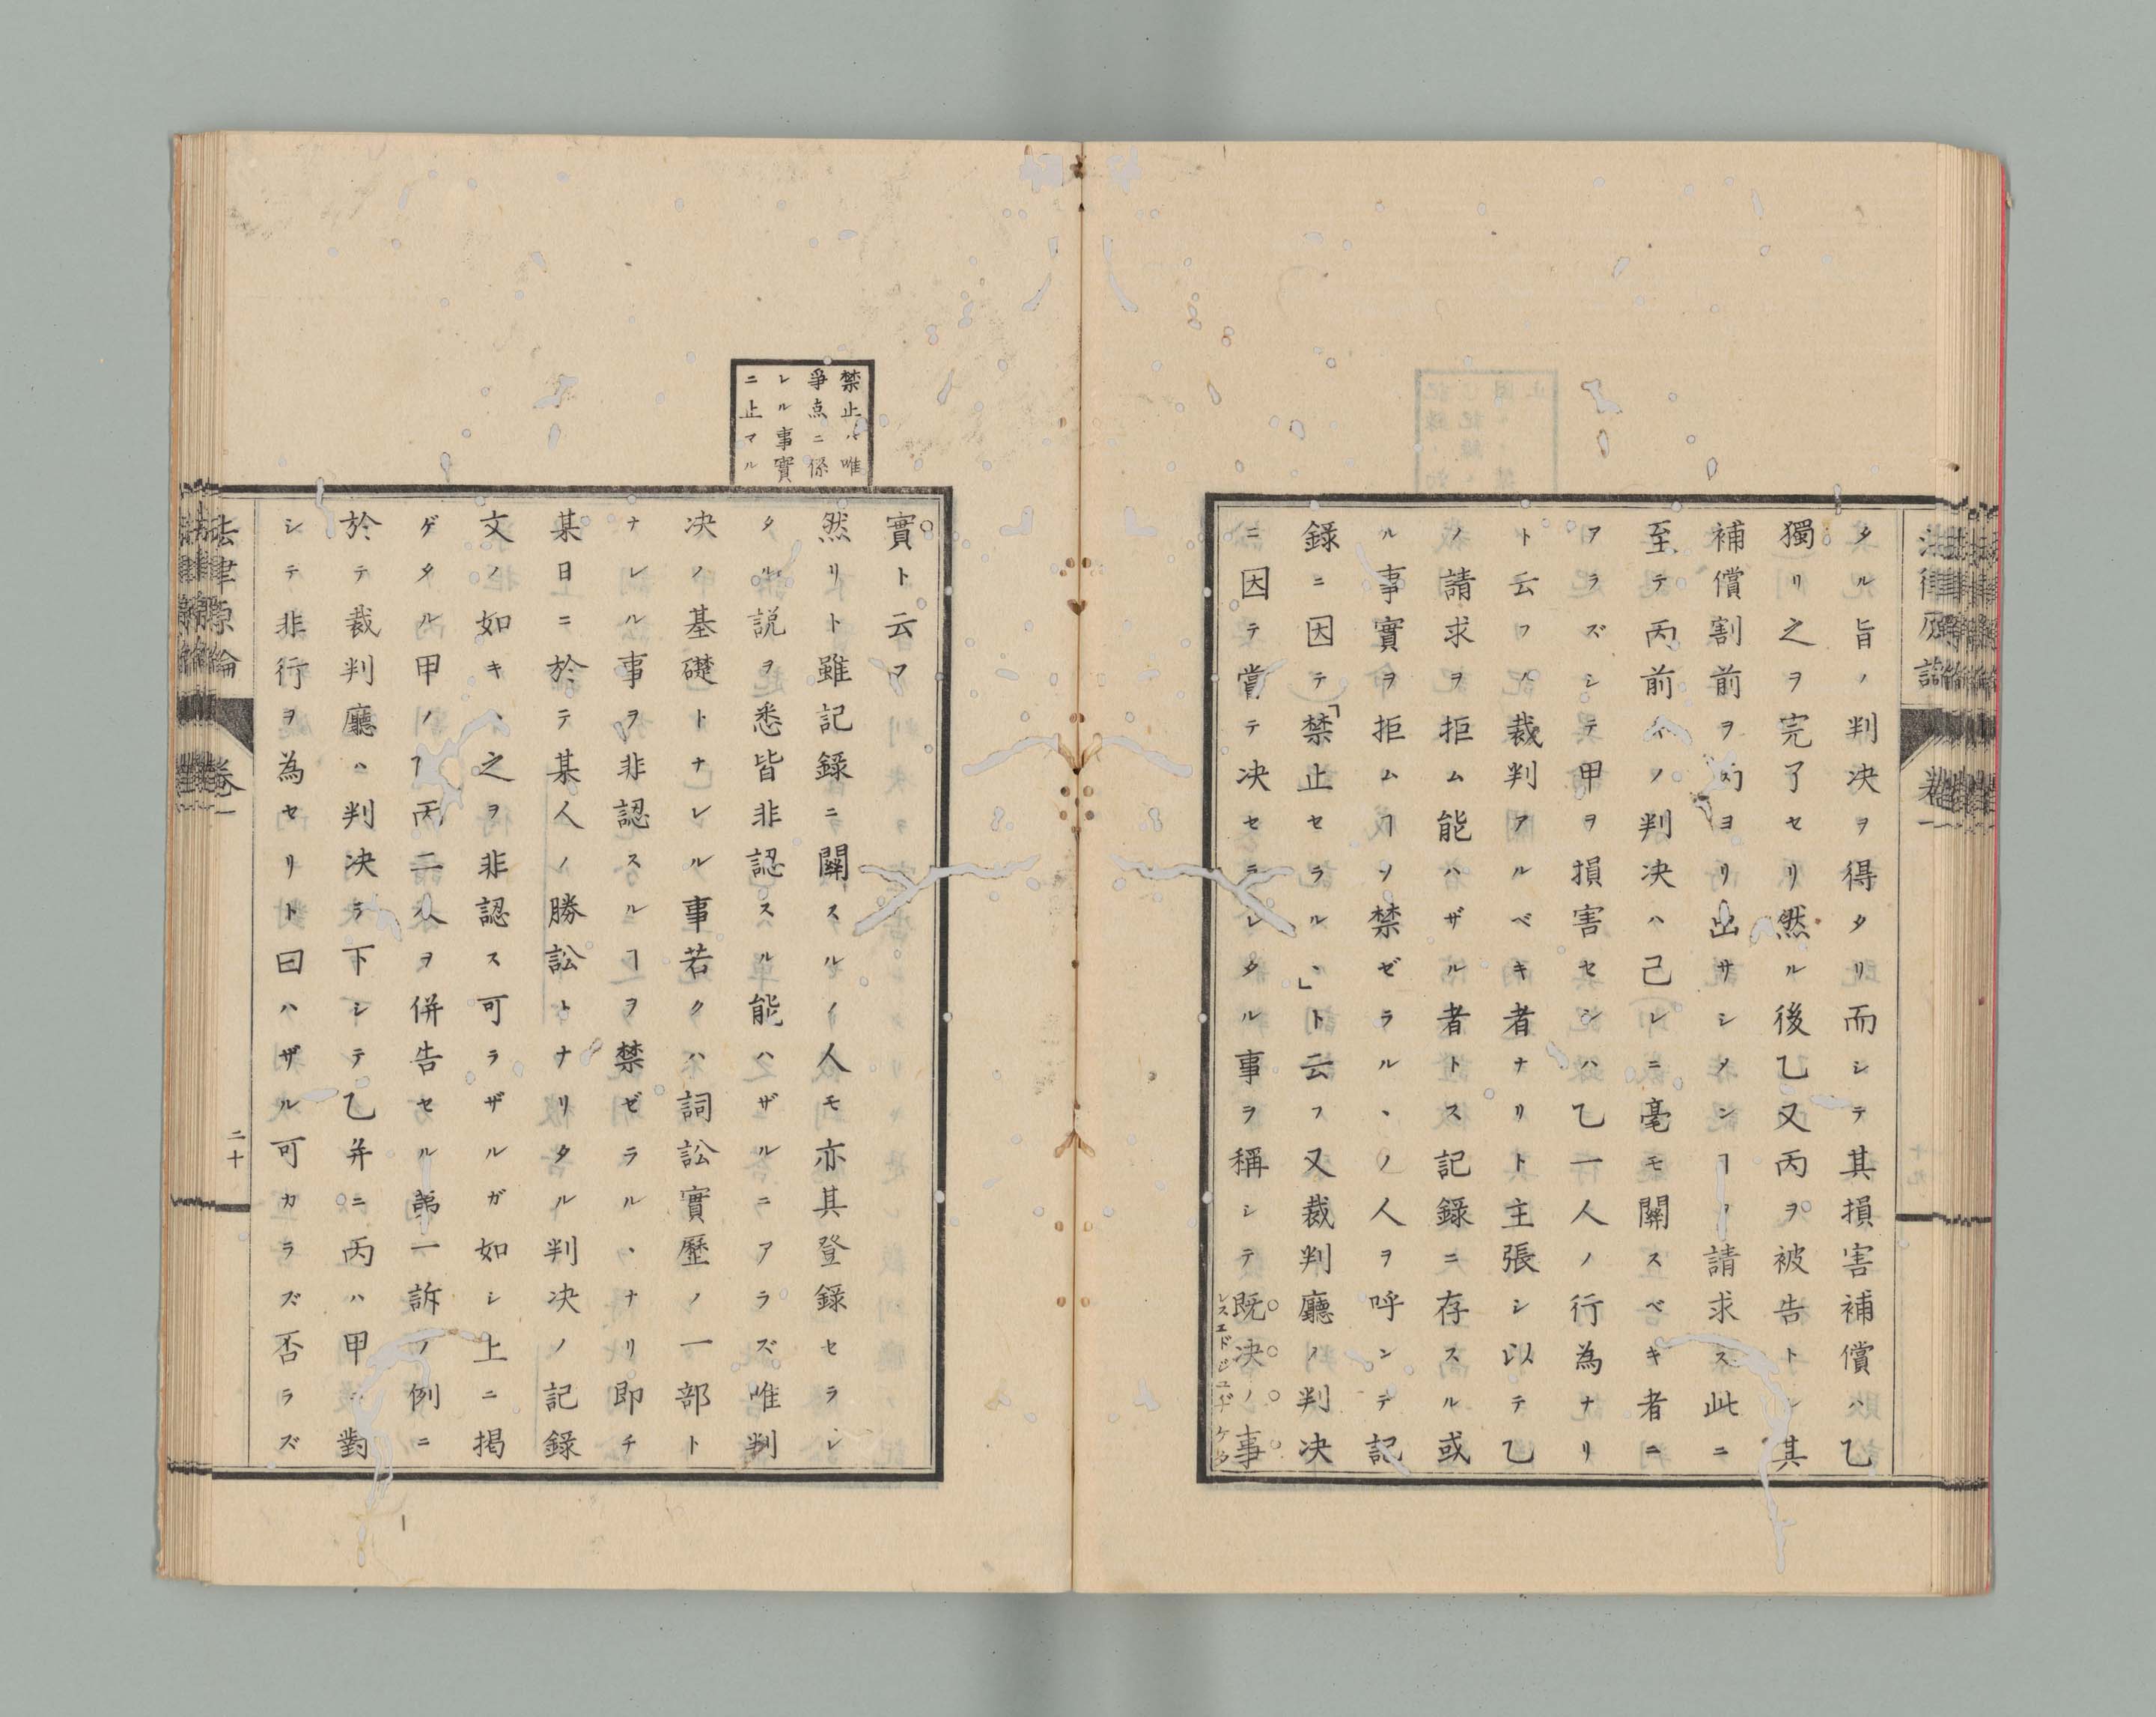 タル旨ノ判决ヲ得タリ而シテ其損害補償ハ乙
獨リ之ヲ完了セリ然ル後乙又丙ヲ被告トシ其
補償割前ヲ丙ヨリ出サシメンヿヲ請求ス此ニ
至テ丙前件ノ判决ハ己レニ毫モ關スベキ者ニ
アラズシテ甲ヲ損害セシハ乙一人ノ行為ナリ
ト云フノ裁判アルベキ者ナリト主張シ以テ乙
ノ請求ヲ拒ム能ハザル者トス記錄ニ存スル或
ル事實ヲ拒ムヿヲ禁ゼラルヽノ人ヲ呼ンデ記
錄ニ因テ「禁止セラルヽ」ト云フ又裁判廳ノ判决
ニ因テ嘗テ决セラレタル事ヲ稱シテ既决ノ事
レスエドジユヂケタ
實ト云フ
禁止ハ唯
爭点ニ係
レル事實
ニ止マル
然リト雖記錄ニ關スルノ人モ亦其登錄セラレ
タル説ヲ悉皆非認スル能ハザルニアラズ唯判
决ノ基礎トナレル事若クハ詞訟實歷ノ一部ト
ナレル事ヲ非認スルヿヲ禁ゼラルヽナリ即チ
某日ニ於テ某人ノ勝訟トナリタル判决ノ記錄
文ノ如キハ之ヲ非認ス可ラザルガ如シ上ニ掲
ゲタル甲ノ乙丙二人ヲ併告セル第一訴ノ例ニ
於テ裁判廳ハ判决ヲ下シテ乙并ニ丙ハ甲ニ對
シテ非行ヲ為セリト曰ハザル可カラズ否ラズ
法律原論
卷一
二十